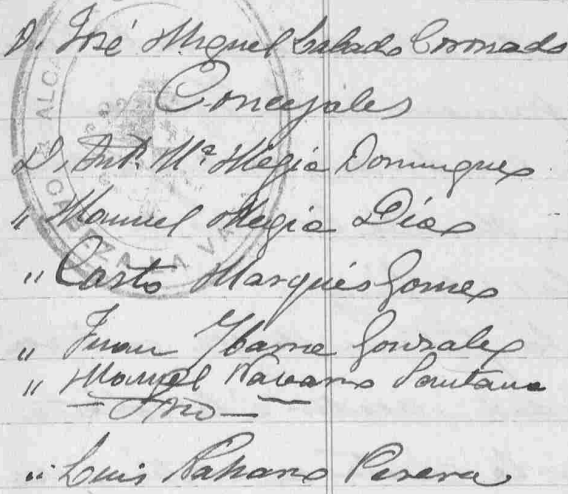 D. José Miguel Salvado Coronado
Concejales
D. Antº Mª Megia Domingues
" Manuel Megia Días
" Casto Marqués Gomes
" Juan Ybarra Gonzales
" Manuel Navarro Santana
Srio
" Luis Perera
ALCA
CABEZA LA VA